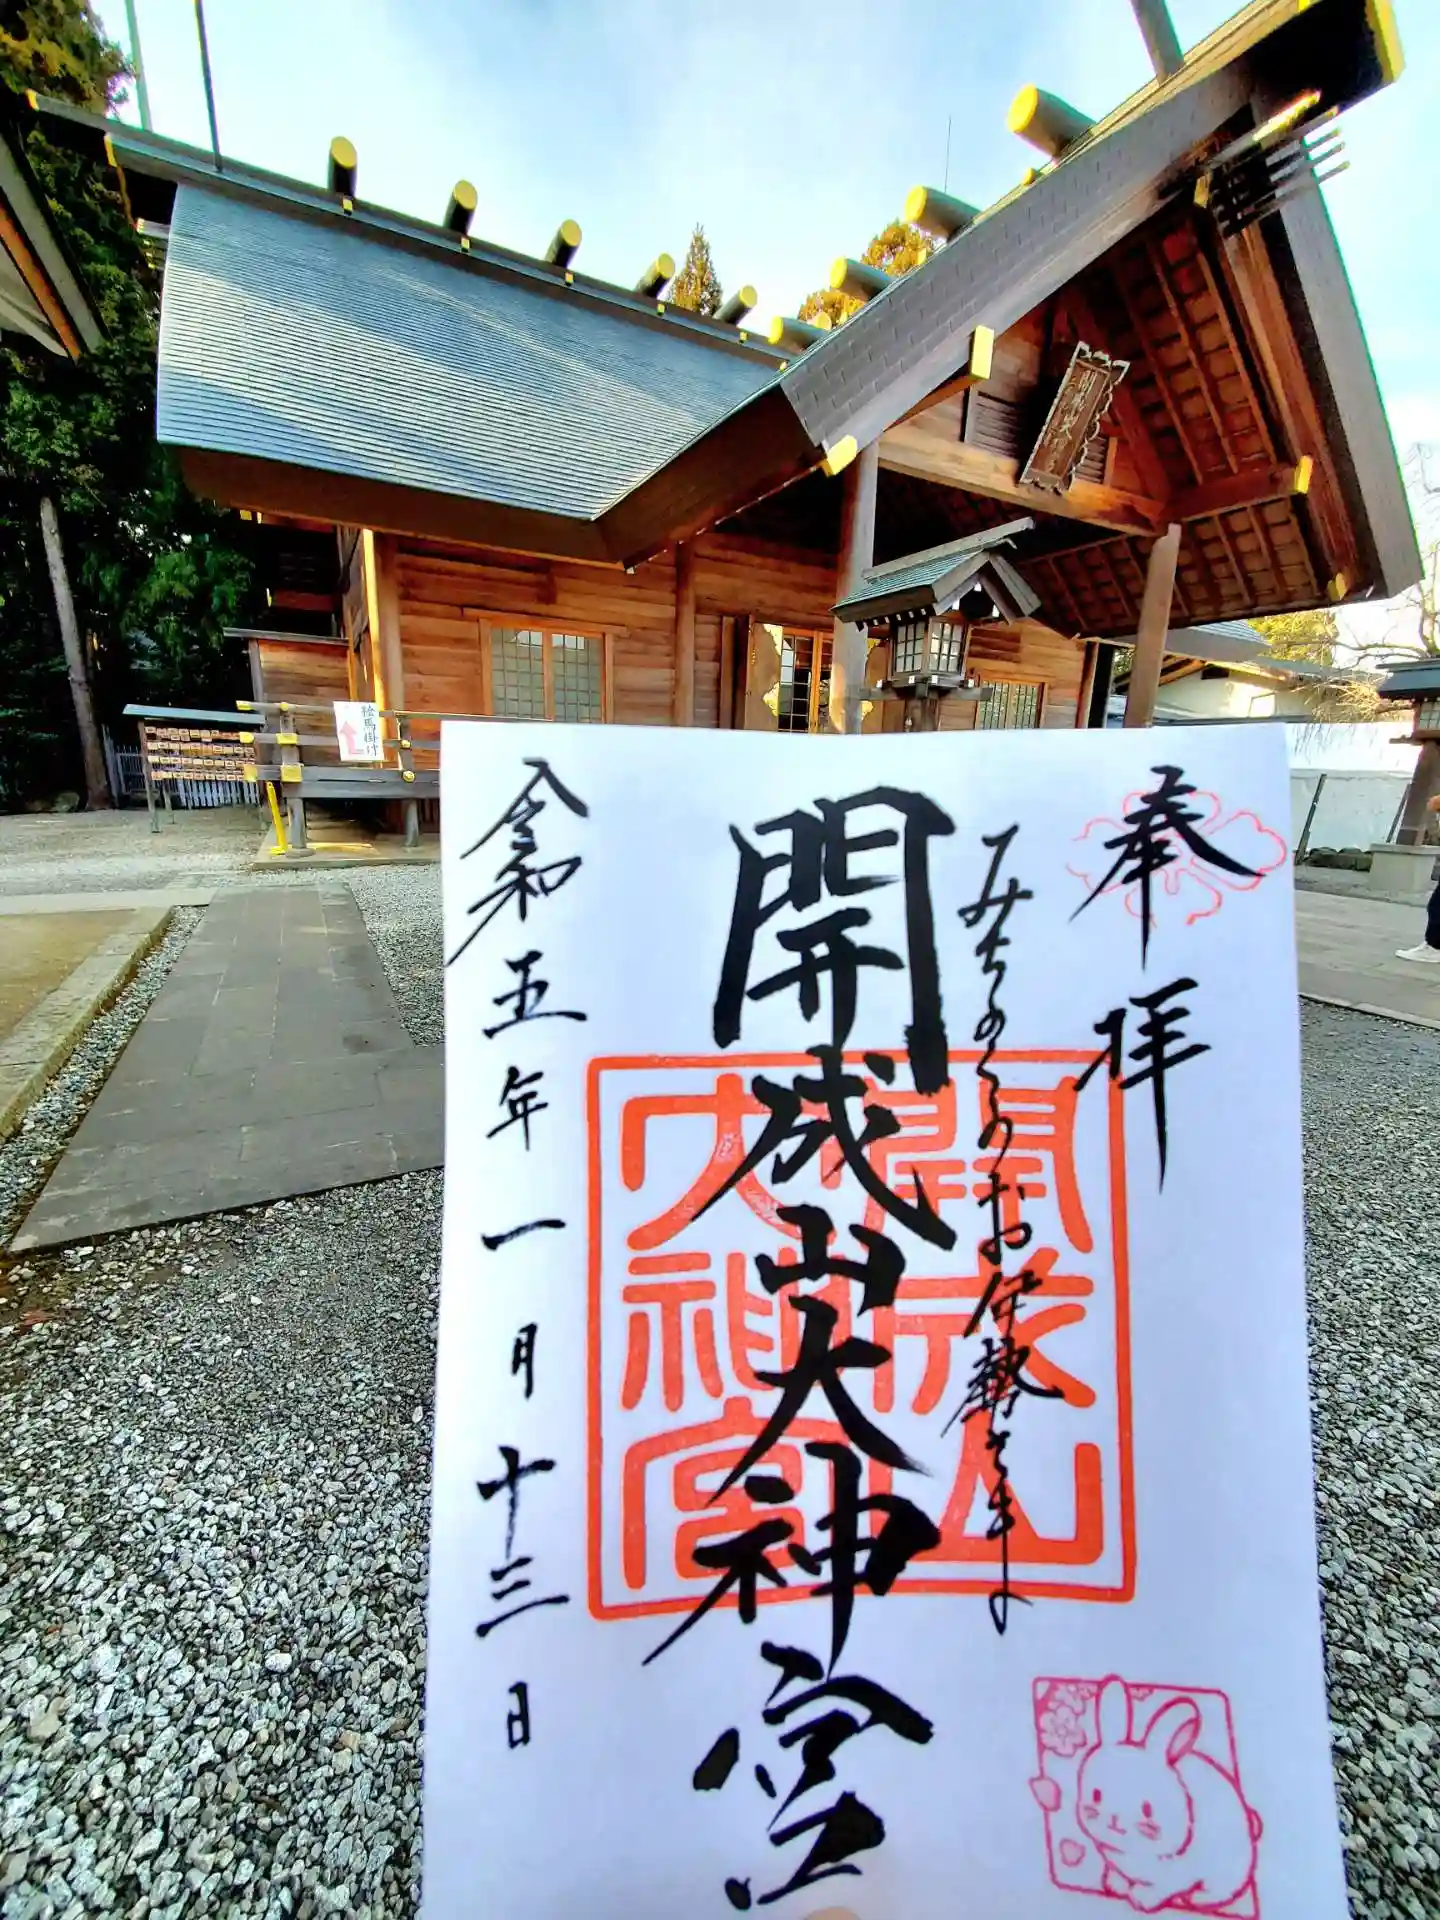 開成山大神宮
絵馬掛け
奉拝
みちのくのお伊勢さま
開成山大神宮
開成山
大神宮
令和五年一月十三日